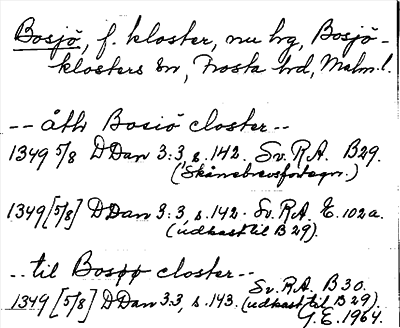 Bosjö, f. kloster, nu hg, Bosjö-
klosters sn, Frosta hd, Malm. l.
-- åth Bosiö closter --
1349 5/8 DDan 3:3, s. 142. Sv. R.A. B29.
(Skånebrevsförtegn.)
1349 [5/8] DDan 3:3, s. 142. Sv. R.A. E. 102a.
(udkast til B 29).
-- til Bosøø closter --
Sv. R.A. B 30.
1349 [5/8] DDan 3:3, s. 143. (udkast til B 29).
G.E. 1964.